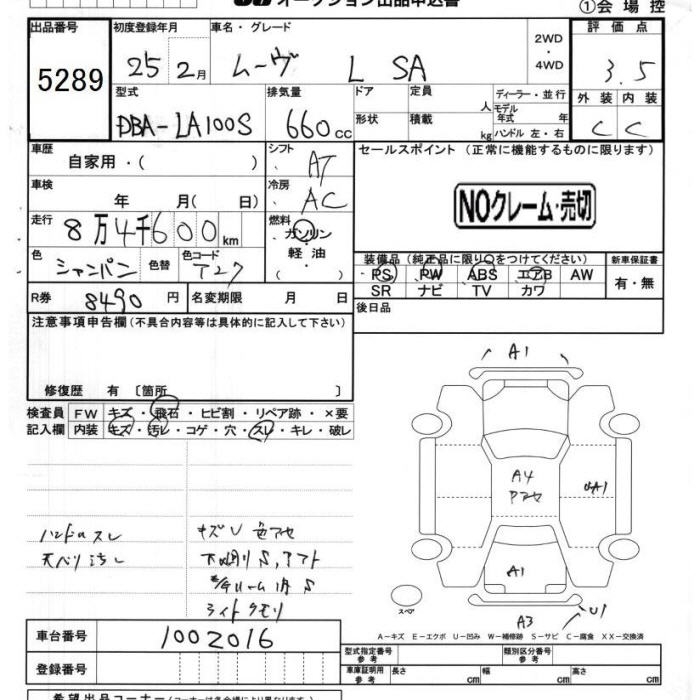 オークション出品申込書
①会場控
出品番号 初度登録年月 車名・グレード 2WD・4WD 評価点
5289 25 2月 ムーヴ L SA 3.5
型式 排気量 ドア 定員 人 ディーラー・並行 外装 内装
DBA-LA100S 660cc 形状 積載 kg モデル年式 年 ハンドル 左・右 C C
車歴 自家用・( ) シフト AT セールスポイント (正常に機能するものに限ります)
車検 年 月( 日) 冷房 AC
NOクレーム・売切
走行 8万4千600km 燃料 ガソリン・軽油・( )
色 シャンパン 色替 色コード T27
装備品(純正品に限り○をつけてください) 新車保証書
PS PW ABS エアB AW 有・無
SR ナビ TV カワ
R券 8490円 名変期限 月 日 後日品
注意事項申告欄(不具合内容等は具体的に記入して下さい)
修復歴 有〔箇所 〕
検査員 FW キズ・飛石・ヒビ割・リペア跡・×要
記入欄 内装 キズ・汚レ・コゲ・穴・スレ・キレ・破レ
ハンドルスレ キズU 色アセ
天ベリ汚レ
ライトクモリ
A1
A4
UA1
A1
スペア
A3 U1
A-キズ E-エクボ U-凹み W-補修跡 S-サビ C-腐食 XX-交換済
車台番号 1002016
型式指定番号 参考 類別区分番号 参考
登録番号 車庫証明用 参考 長さ cm 幅 cm 高さ cm
希望出品コーナー